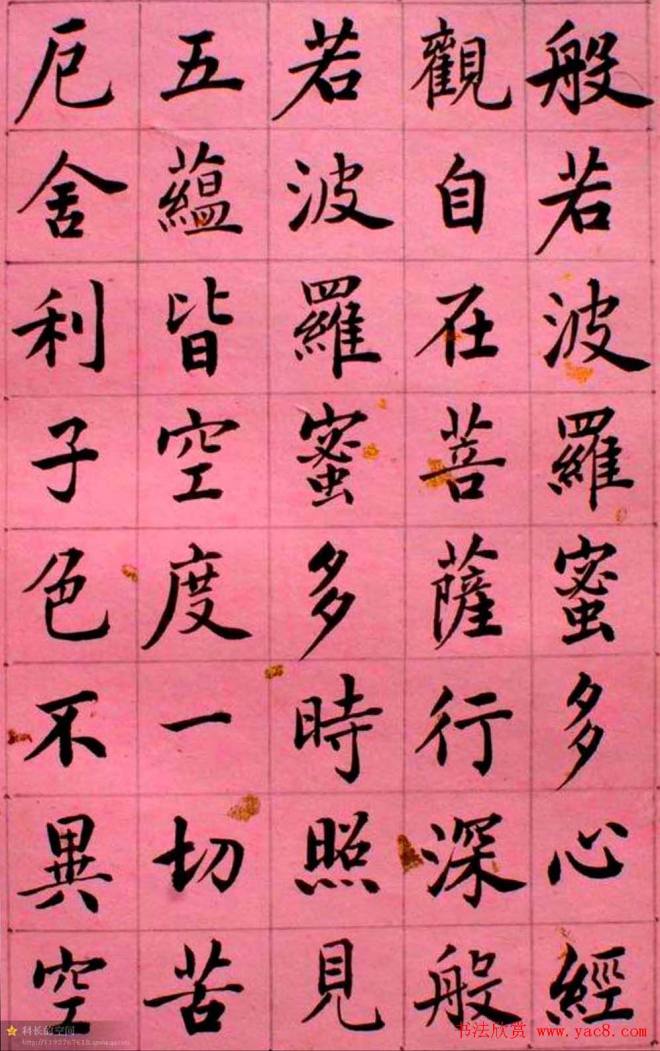 般若波羅蜜多心經
觀自在菩薩行深般
若波羅蜜多時照見
五蘊皆空度一切苦
厄舍利子色不異空
科长的空间
书法欣赏 www.yac8.com